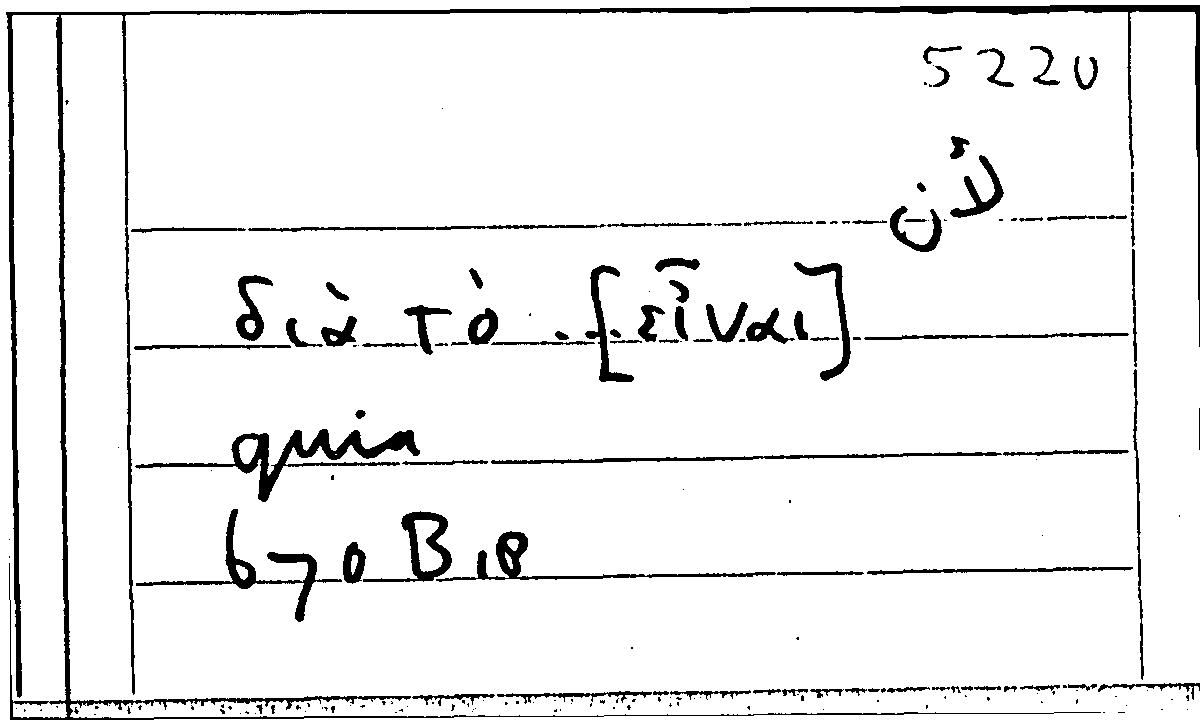 5220
لأن
διὰ τὸ ... [εἶναι]
quia
670 B 18